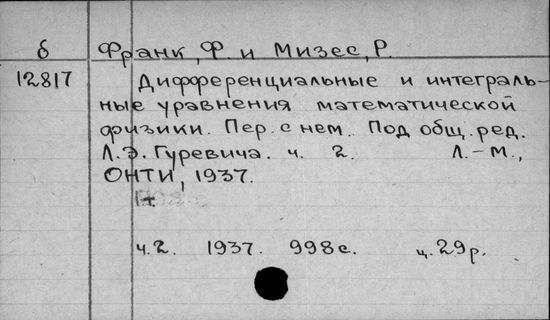 б Франк, Ф. и Мизес, Р.
12817 Дифференциальные и интеграль-
ные уравнения математической
физики. Пер. с нем. Под общ. ред.
Л.Э. Гуревича. ч. 2. Л.-М.,
ОНТИ, 1937.
1т.
ч.2. 1937. 998с. ц. 29р.